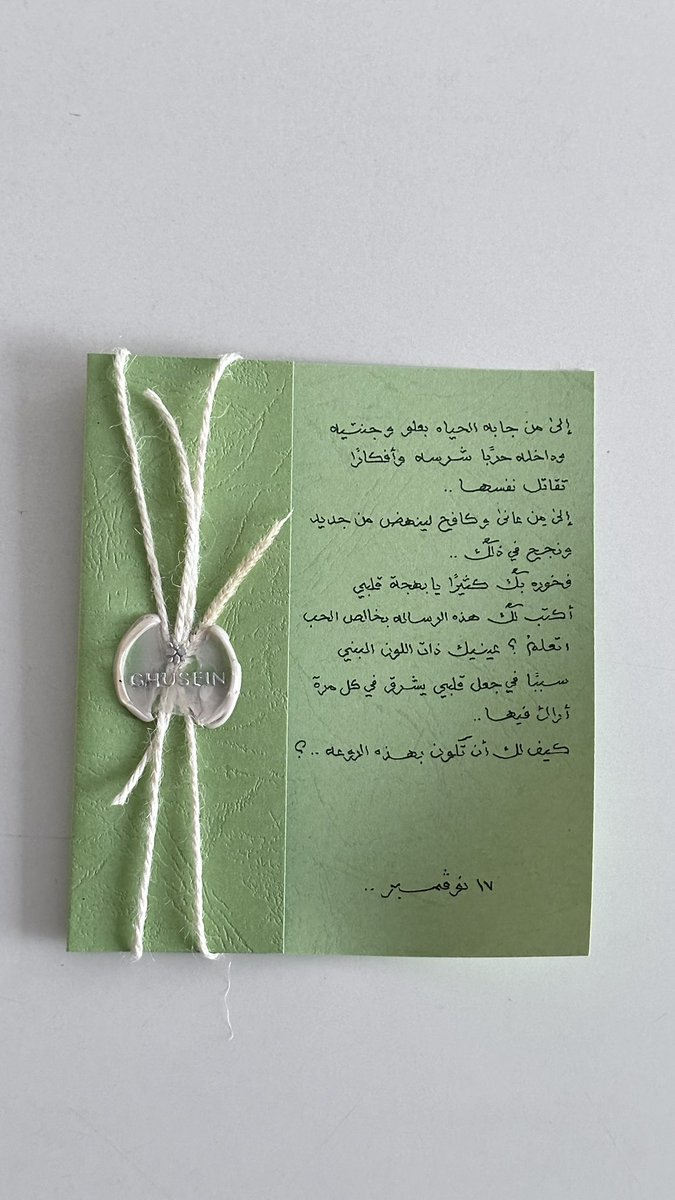 إلىٰ من جابه الحياه بعلو وجنتيه
وداخله حربًا شرسه وأفكارًا
تقاتل نفسها ..
إلىٰ من عانىٰ وكافح لينهض من جديد
ونجح في ذلك ..
فخوره بك كثيرًا يا بهجة قلبي
أكتب لك هذه الرساله بخالص الحب
اتعلمْ ؟ عينيك ذات اللون البني
سببًا في جعل قلبي يشرق في كل مرة
أراك فيها ..
كيف لك أن تكون بهذه الروعه .. ؟
١٧ نوڤمبر ..
GHUSEIN